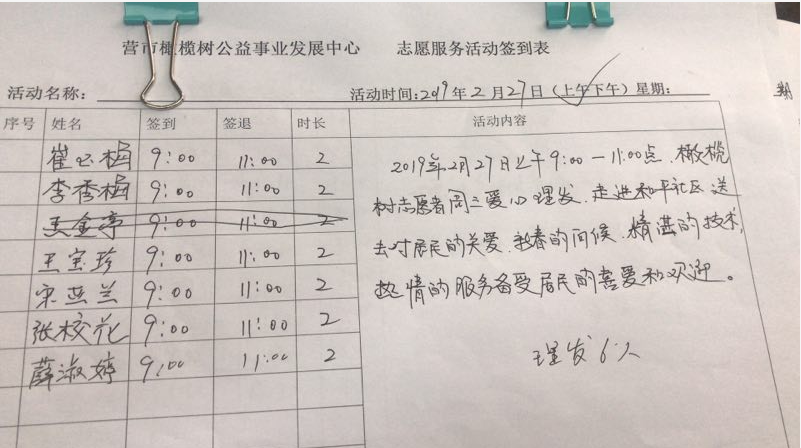 营市橄榄树公益事业发展中心 志愿服务活动签到表
活动名称： 活动时间:2019年2月27日（上午下午）星期：
序号 姓名 签到 签退 时长 活动内容
崔玉梅 9:00 11:00 2
李秀梅 9:00 11:00 2
王金亭 9:00 11:00 2
王宝珍 9:00 11:00 2
宋燕兰 9:00 11:00 2
张校花 9:00 11:00 2
薛淑婷 9:00 11:00 2
2019年2月27日上午9:00—11:00点.橄榄
树志愿者周三爱心理发.走进和平社区送
去对居民的关爱.新春的问候.精湛的技术,
热情的服务备受居民的喜爱和欢迎。
理发6人